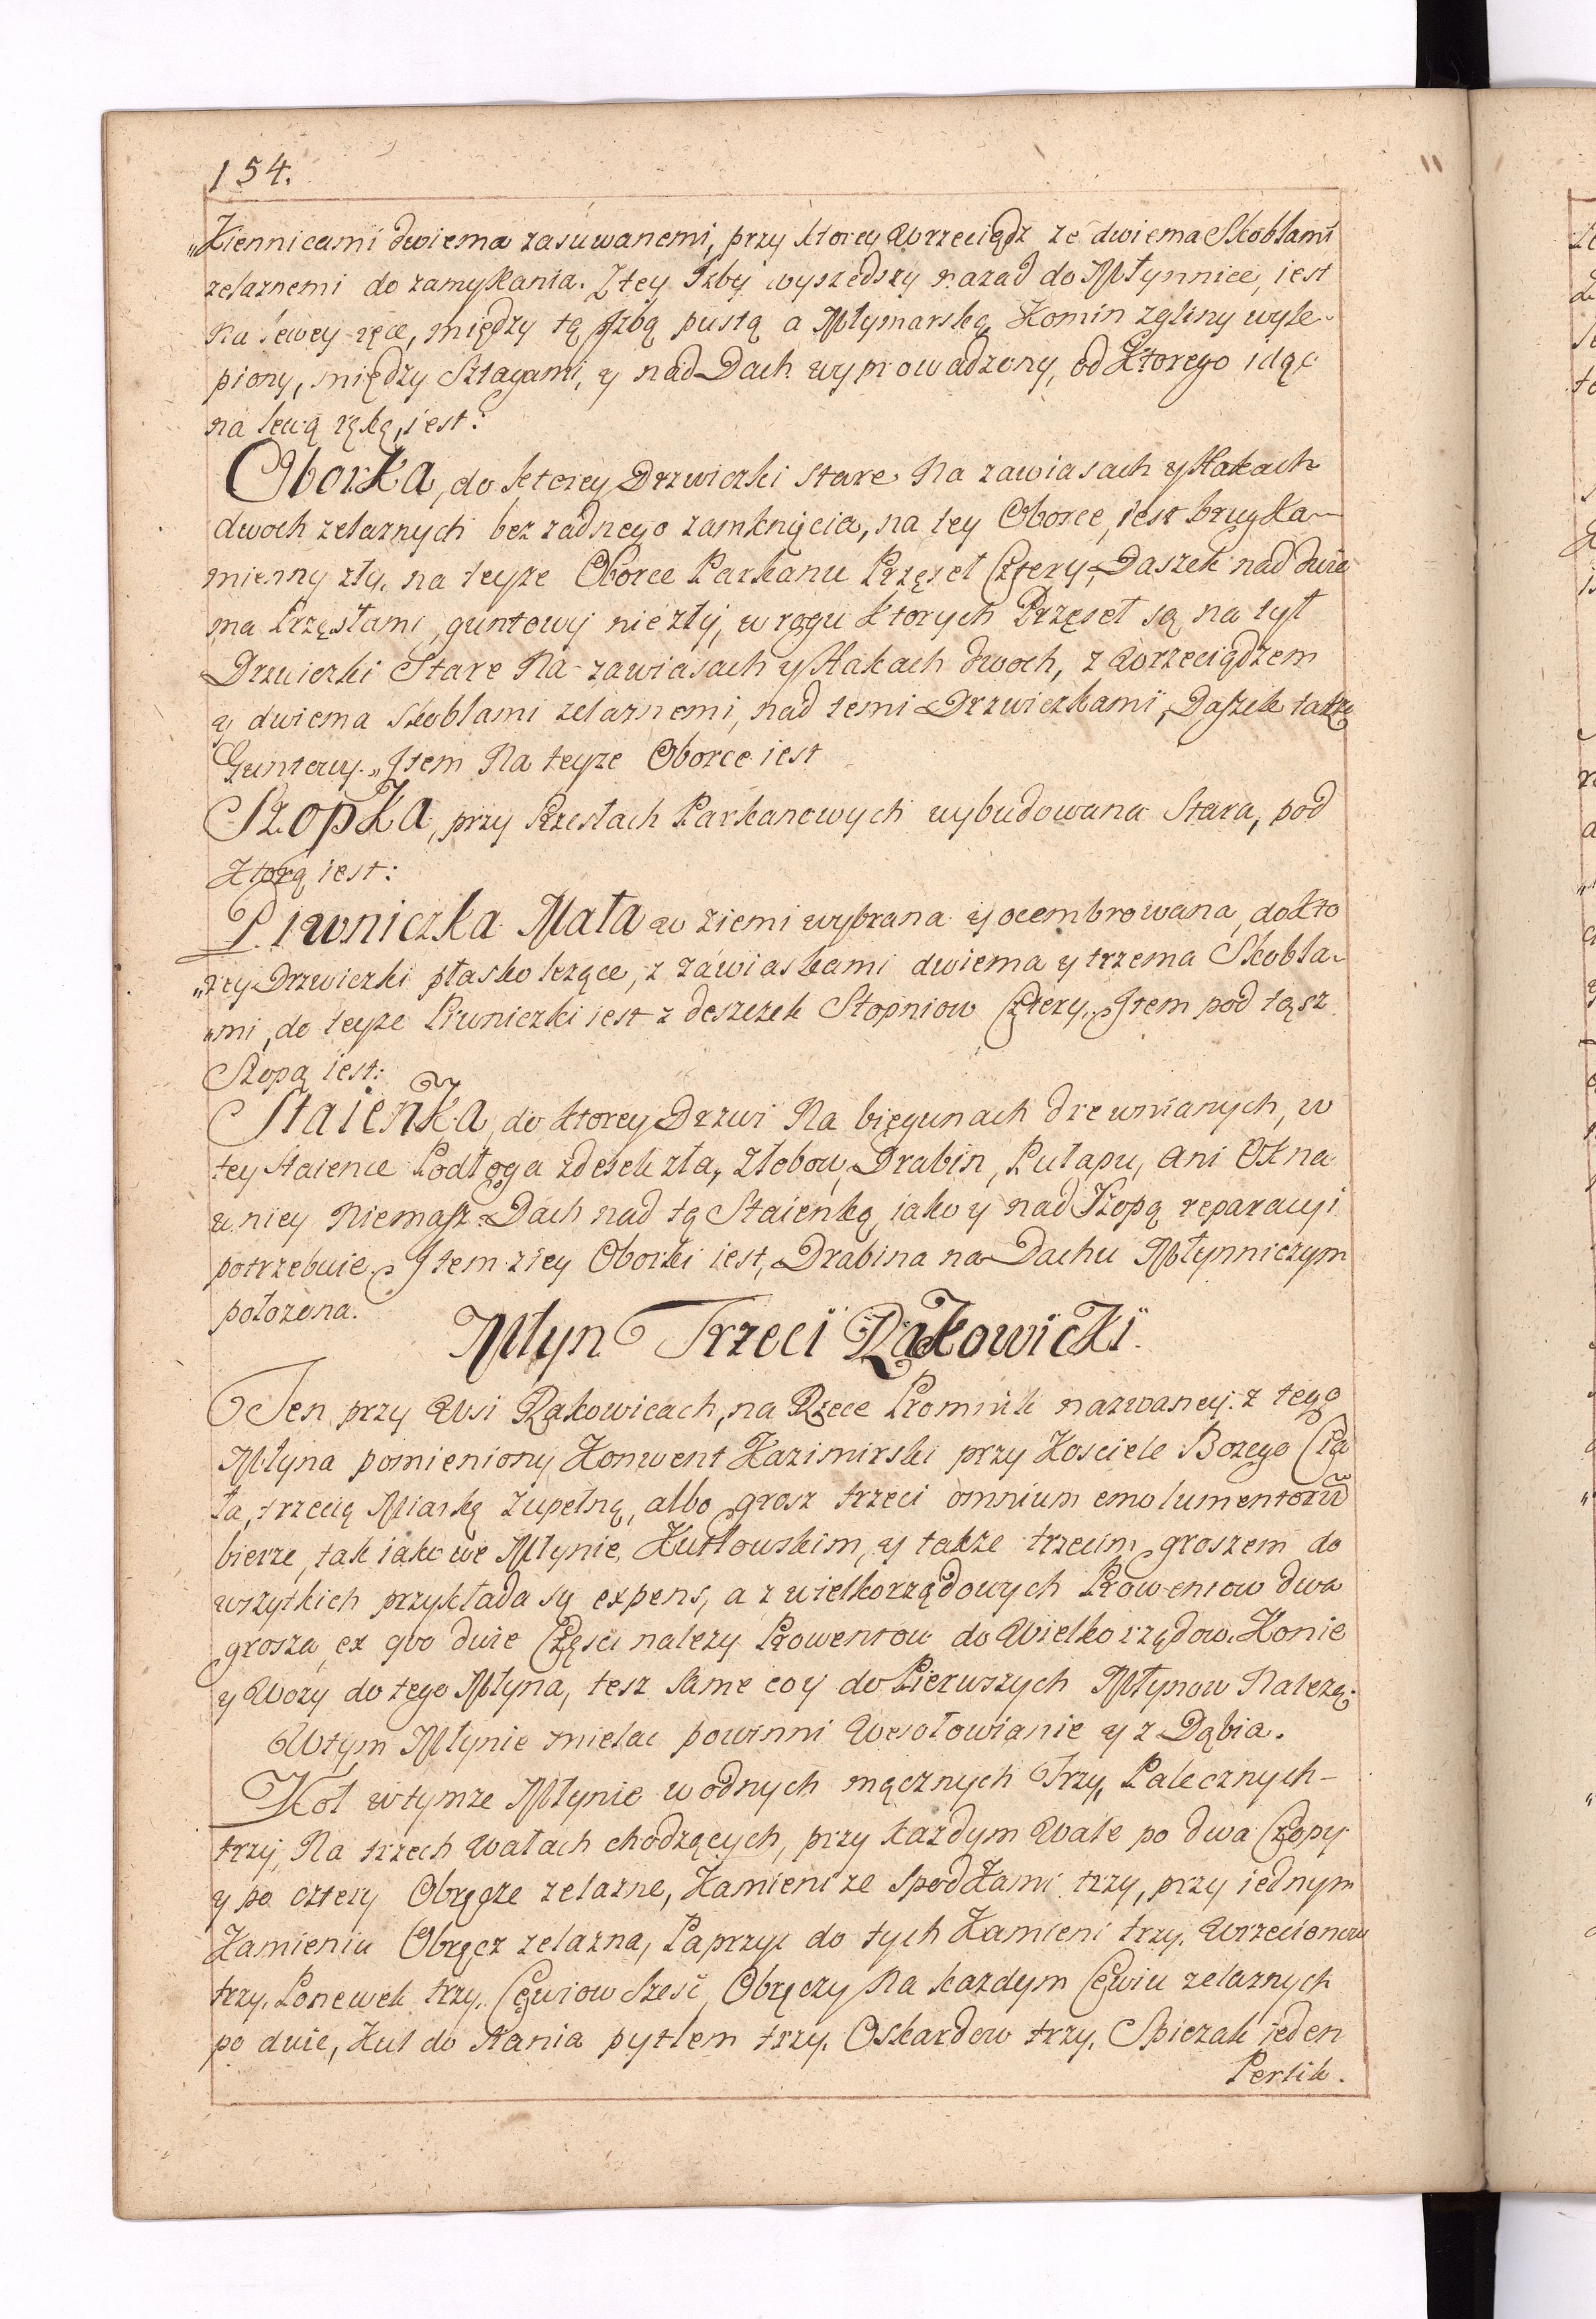 154.
„Kiennicami dwiema zasuwanemi, przy ktorey Wrzeciądz ze dwiema Skoblami
zelaznemi do zamykania. Z tey Izby wyszedszy nazad do Młynnice, iest
na lewey ręce, między tą Izbą pustą a Młynarską, Komin zgliny wyle-
piony, między Sztagami, y nad Dach wyprowadzony, od Ktorego idąc
na lewą rękę, iest:
Oborka, do ktorey Drzwiczki stare Na zawiasach y Hakach
dwoch zelaznych bez zadnego zamknięcia, na tey Oborce, iest bruk Ka-
mienny zły, na teyze Oborce Parkanu Przęseł Cztery, Daszek nad dwie
ma Przęsłami, guntowy niezły, w rogu ktorych Przęseł są na tył
Drzwiczki Stare Na zawiasach y Hakach dwoch, z Worzeciądzem
y dwiema skoblami zelaznemi, nad temi Drzwiczkami, Daszek takze
Guntowy. „Item Na teyze Oborce iest
Szopka, przy Przesłach Parkanowych wybudowana Stara, pod
Ktorą iest:
Piwniczka Mała w ziemi wybrana y ocembrowana, do Kto
„rey Drzwiczki płasko lezące, z zawiaskami dwiema y trzema Skobla-
„mi, do teyze Piwniczki iest z deszczek Stopniow Cztery. Item pod tąsz
Szopą iest:
Staienka, do ktorey Drzwi Na biegunach drewnianych, w
tey staience Podłoga z desek zła, Złobow, Drabin, Pułapu, ani Okna
w niey Niemasz. Dach nad tą Staienką, iako y nad Szopą reparacyi
potrzebuie. Item z iey Oborki iest, Drabina na Dachu Młynniczym
połozona.
Młyn Trzeci Rakowicki.
Ten przy Wsi Rakowicach, na Rzece Promnik nazwaney: z tego
Młyna pomieniony Konwent Kazimirski przy Kosciele Bozego Cia
ła, trzecią Miarkę zupełną, albo grosz trzeci omnium emolumentorũ
bierze, tak iako we Młynie, Kutłowskim, y takze trzecim groszem do
wszytkich przykłada sy expens, a z wielkorządowych Prowentow dwa
grosza, ex quo dwie Części nalezy Prowentow do Wielkorządow. Konie
y Wozy do tego Młyna, tesz same coy do Pierwszych Młynow Nalezą;
Wtym Młynie mielac powinni Wesołowianie y z Dąbia.
Koł wtymze Młynie wodnych mącznych Trzy, Palecznych-
trzy, Na trzech Wałach chodzących, przy kazdym Wale po dwa Czopy
y po cztery Obręcze zelazne, Kamieni ze Spodkami trzy, przy iednym
Kamieniu Obręcz zelazna, Paprzyc do tych Kamieni trzy. Wrzecionow
trzy. Panewek trzy. Cewiow Szesc, Obręczy Na kazdym Cewiu zelaznych
po dwie, Kul do Stania pytlem trzy. Oskardow trzy. Spiczak ieden
Perlik.